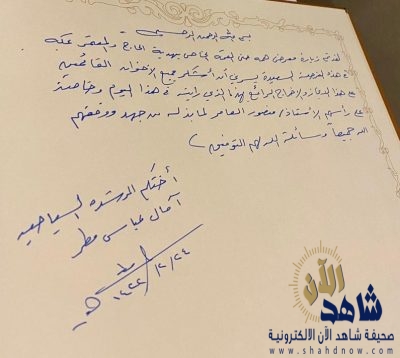 بسم الله الرحمن الرحيم
لقد تم زيارة معرض هدية الحاج والمعتمر بمكة
هذه الفرصة السعيدة يسرني أن أشكر جميع الإخوان القائمين
على هذا الإخراج الرائع لهذا الذي رأيته في هذا اليوم وخاصة
على رأسهم الأستاذ/ منصور العامر لما بذله من جهد ووفقهم
الله جميعاً وسائلة الله لهم التوفيق
أختكم المرشدة السياحية
آمال عباس مطر
١٤٤٢/٢/٢٤
شاهد الآن
صحيفة شاهد الآن الالكترونية
www.shahdnow.com